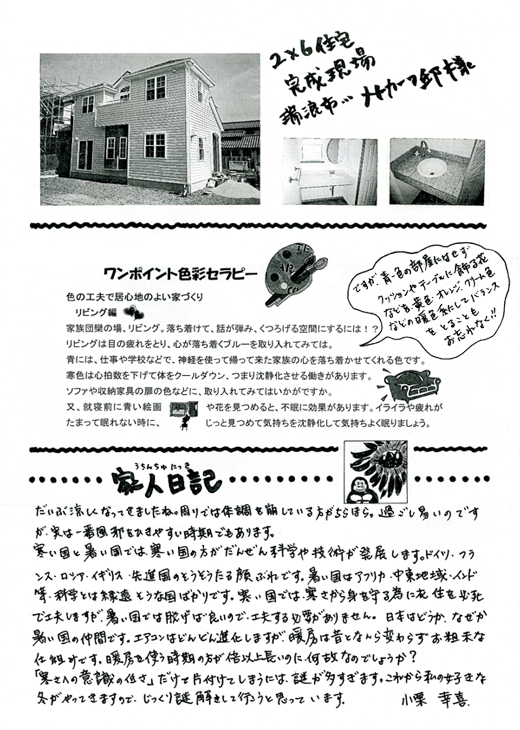 2×6住宅
完成現場
瑞浪市… サカーフ邸様
ワンポイント色彩セラピー
ARTE
色の工夫で居心地のよい家づくり
リビング編
家族団欒の場、リビング。落ち着けて、話が弾み、くつろげる空間にするには！？
リビングは目の疲れをとり、心が落ち着くブルーを取り入れてみては。
青には、仕事や学校などで、神経を使って帰って来た家族の心を落ち着かせてくれる色です。
寒色は心拍数を下げて体をクールダウン、つまり沈静化させる働きがあります。
ソファや収納家具の扉の色などに、取り入れてみてはいかがですか。
又、就寝前に青い絵画や花を見つめると、不眠に効果があります。イライラや疲れが
たまって眠れない時に、じっと見つめて気持ちを沈静化して気持ちよく眠りましょう。
ですが、青一色の部屋にはせず
クッションやテーブルに飾る花
などを黄色、オレンジ、クリーム色
などの暖色系にしてバランス
をとることも
お忘れなく!!
うちんちゅにっき
家人日記
だいぶ涼しくなってきましたね。周りでは体調を崩している方がちらほら。過ごし易いのです
が実は一番風邪をひきやすい時期でもあります。
寒い国と暑い国では、寒い国の方がだんぜん科学や技術が発展します。ドイツ・フラ
ンス・ロシア・イギリス・先進国のそうそうたる顔ぶれです。暑い国はアフリカ・中東地域・インド
等、科学とは縁遠そうな国ばかりです。寒い国では、寒さから身を守る為に衣住を必死
で工夫しますが、暑い国では脱げば良いので、工夫する必要がありません。日本はどうか、なぜか
暑い国の仲間です。エアコンはどんどん進化しますが暖房は昔とから変わらずお粗末な
仕組みです。暖房を使う時期の方が倍以上長いのに、何故なのでしょうか？
「寒さへの意識の低さ」だけで片付けてしまうには、謎が多すぎます。これから私の好きな
冬がやってきますので、じっくり謎解きして行こうと思っています。 小栗 幸喜